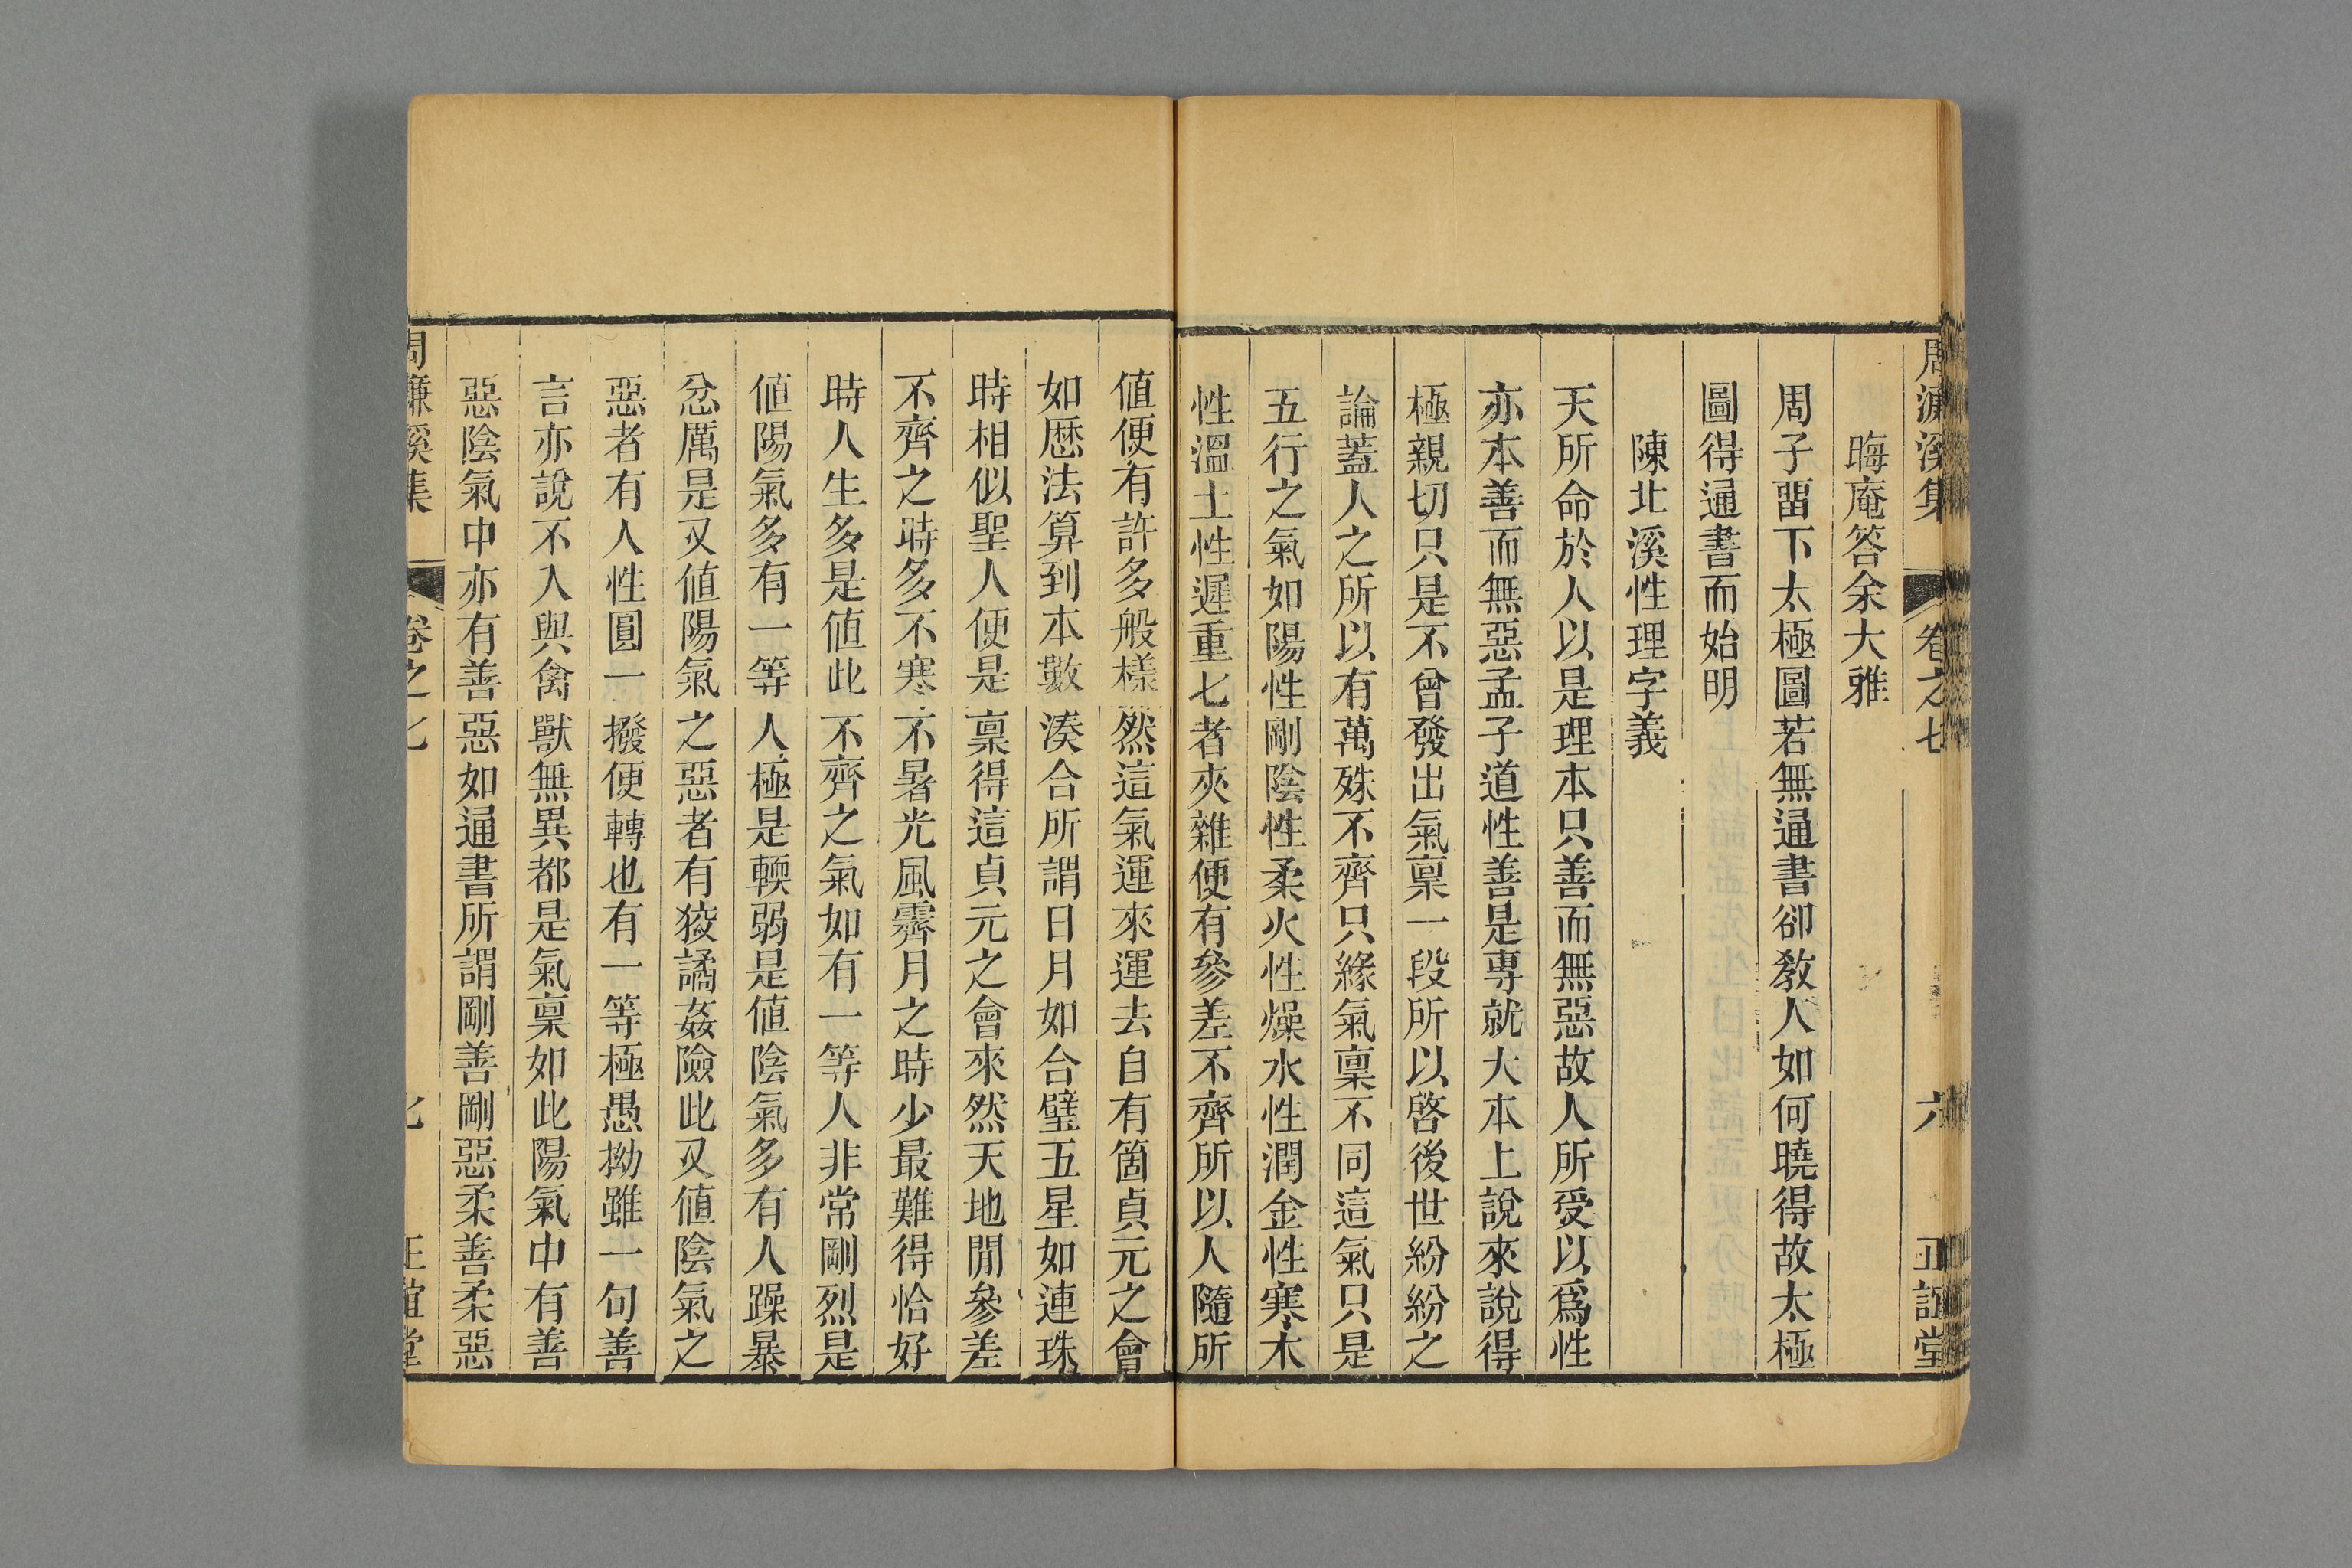 周濂溪集 卷之七 六 正誼堂
晦庵答余大雅
周子畱下太極圖若無通書卻敎人如何曉得故太極
圖得通書而始明
陳北溪性理字義
天所命於人以是理本只善而無惡故人所受以爲性
亦本善而無惡孟子道性善是專就大本上說來說得
極親切只是不曾發出氣稟一段所以啓後世紛紛之
論蓋人之所以有萬殊不齊只緣氣稟不同這氣只是
五行之氣如陽性剛陰性柔火性燥水性潤金性寒木
性溫土性遲重七者夾雜便有參差不齊所以人隨所
値便有許多般樣然這氣運來運去自有箇貞元之會
如歴法算到本數湊合所謂日月如合璧五星如連珠
時相似聖人便是稟得這貞元之會來然天地閒參差
不齊之時多不寒不暑光風霽月之時少最難得恰好
時人生多是値此不齊之氣如有一等人非常剛烈是
値陽氣多有一等人極是輭弱是値陰氣多有人躁暴
忿厲是又値陽氣之惡者有狡譎姦險此又値陰氣之
惡者有人性圓一撥便轉也有一等極愚拗雖一句善
言亦說不入與禽獸無異都是氣稟如此陽氣中有善
惡陰氣中亦有善惡如通書所謂剛善剛惡柔善柔惡
周濂溪集 卷之七 七 正誼堂